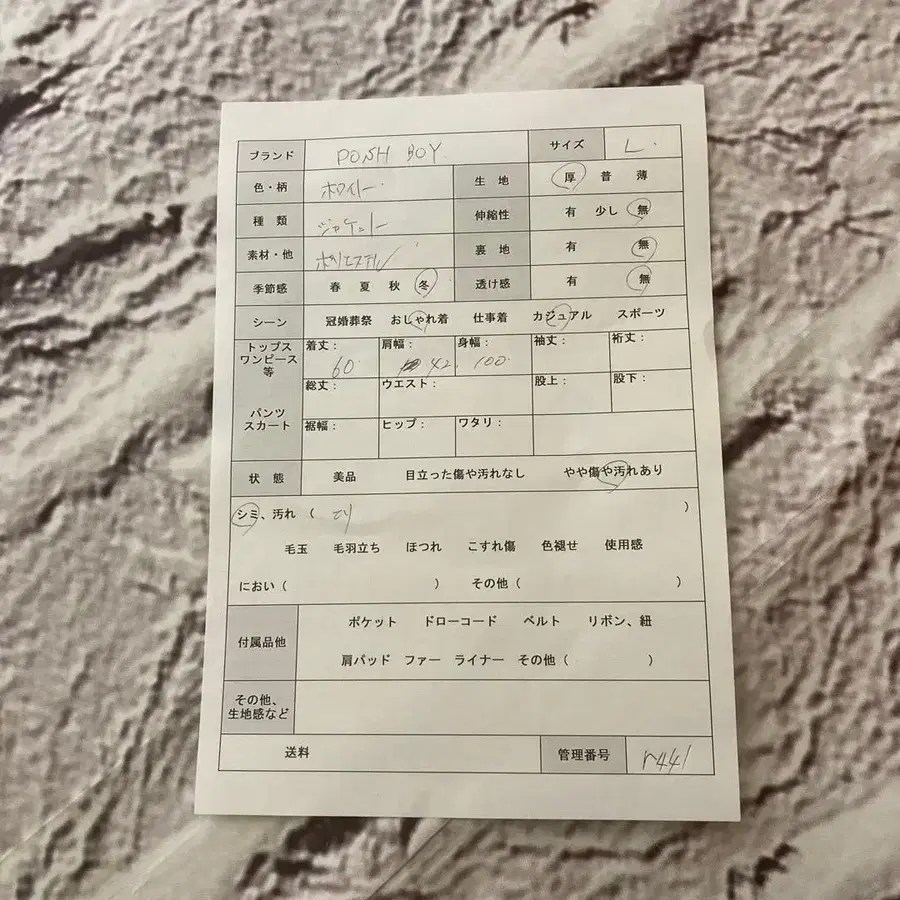 ブランド POSH BOY サイズ L.
色・柄 ホワイト 生地 厚 普 薄
種類 ジャケット 伸縮性 有 少し 無
素材・他 ポリエステル 裏地 有 無
季節感 春 夏 秋 冬 透け感 有 無
シーン 冠婚葬祭 おしゃれ着 仕事着 カジュアル スポーツ
トップス ワンピース 等 着丈: 60 肩幅: 42 身幅: 100 袖丈: 裄丈:
総丈: ウエスト: 股上: 股下:
パンツ スカート 裾幅: ヒップ: ワタリ:
状態 美品 目立った傷や汚れなし やや傷や汚れあり
シミ、汚れ ( エリ )
毛玉 毛羽立ち ほつれ こすれ傷 色褪せ 使用感
におい ( ) その他 ( )
付属品他 ポケット ドローコード ベルト リボン、紐
肩パッド ファー ライナー その他 ( )
その他、
生地感など
送料 管理番号 r441